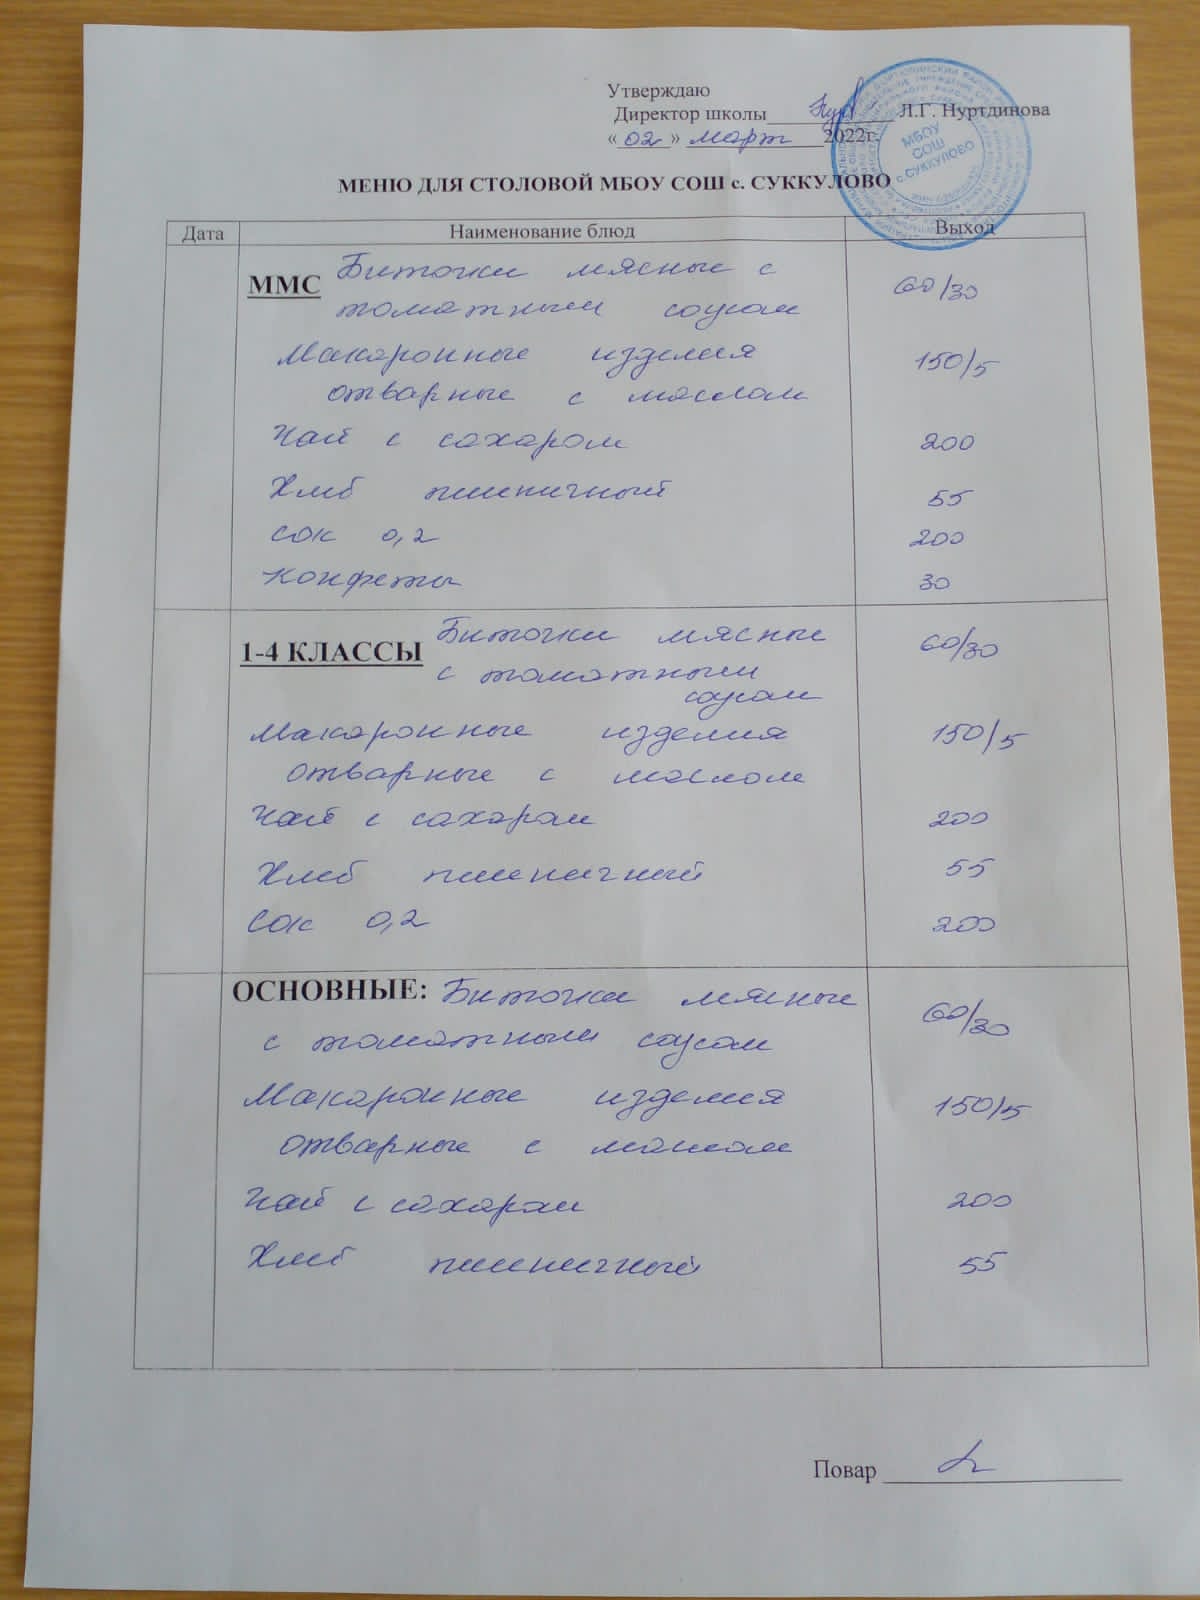 Утверждаю
Директор школы Л.Г. Нуртдинова
«02» март 2022г.
МБОУ
СОШ
с. СУККУЛОВО
МЕНЮ ДЛЯ СТОЛОВОЙ МБОУ СОШ с. СУККУЛОВО
Дата Наименование блюд Выход
ММС Биточки мясные с 60/30
томатным соусом
Макаронные изделия 150/5
отварные с маслом
Чай с сахаром 200
Хлеб пшеничный 55
Сок 0,2 200
Конфеты 30
1-4 КЛАССЫ Биточки мясные 60/30
с томатным
соусом
Макаронные изделия 150/5
отварные с маслом
Чай с сахаром 200
Хлеб пшеничный 55
Сок 0,2 200
ОСНОВНЫЕ: Биточки мясные 60/30
с томатным соусом
Макаронные изделия 150/5
отварные с маслом
Чай с сахаром 200
Хлеб пшеничный 55
Повар